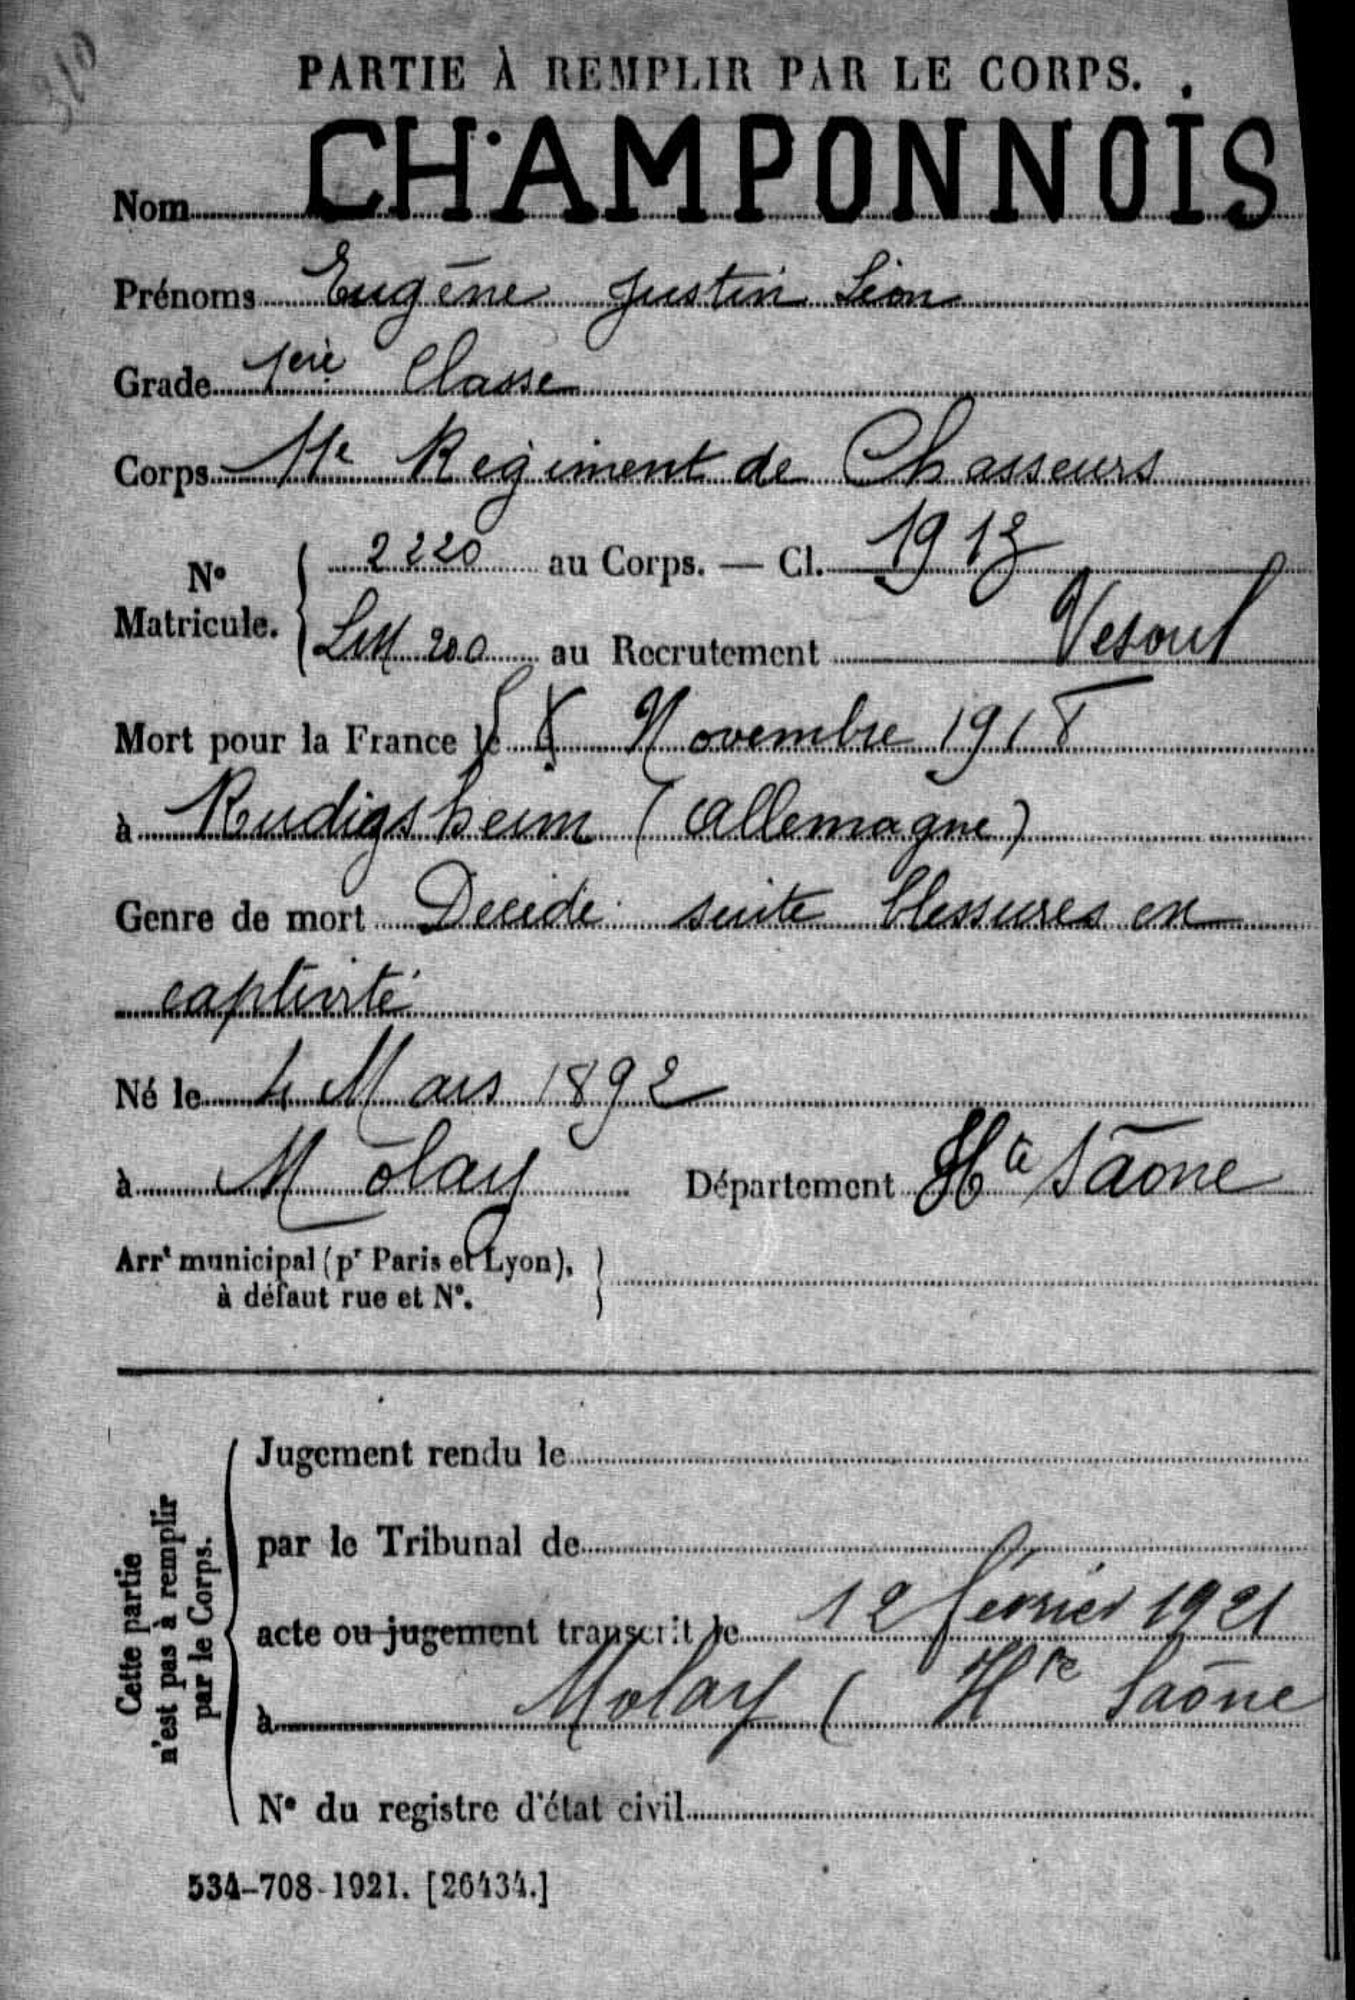 310
PARTIE À REMPLIR PAR LE CORPS.
Nom CHAMPONNOIS
Prénoms Eugène Justin Léon
Grade 1ère Classe
Corps 11e Régiment de Chasseurs
N° Matricule. 2220 au Corps. — Cl. 1912
LM 200 au Recrutement Vesoul
Mort pour la France le 8 Novembre 1918
à Rudigsheim (Allemagne)
Genre de mort Décédé suite blessures en
captivité
Né le 4 Mars 1892
à Molay Département Hte Saône
Arrt municipal (pr Paris et Lyon),
à défaut rue et N°.
Cette partie
n'est pas à remplir
par le Corps.
Jugement rendu le
par le Tribunal de
acte ou jugement transcrit le 12 février 1921
à Molay (Hte Saône
N° du registre d'état civil
534-708-1921. [26434.]